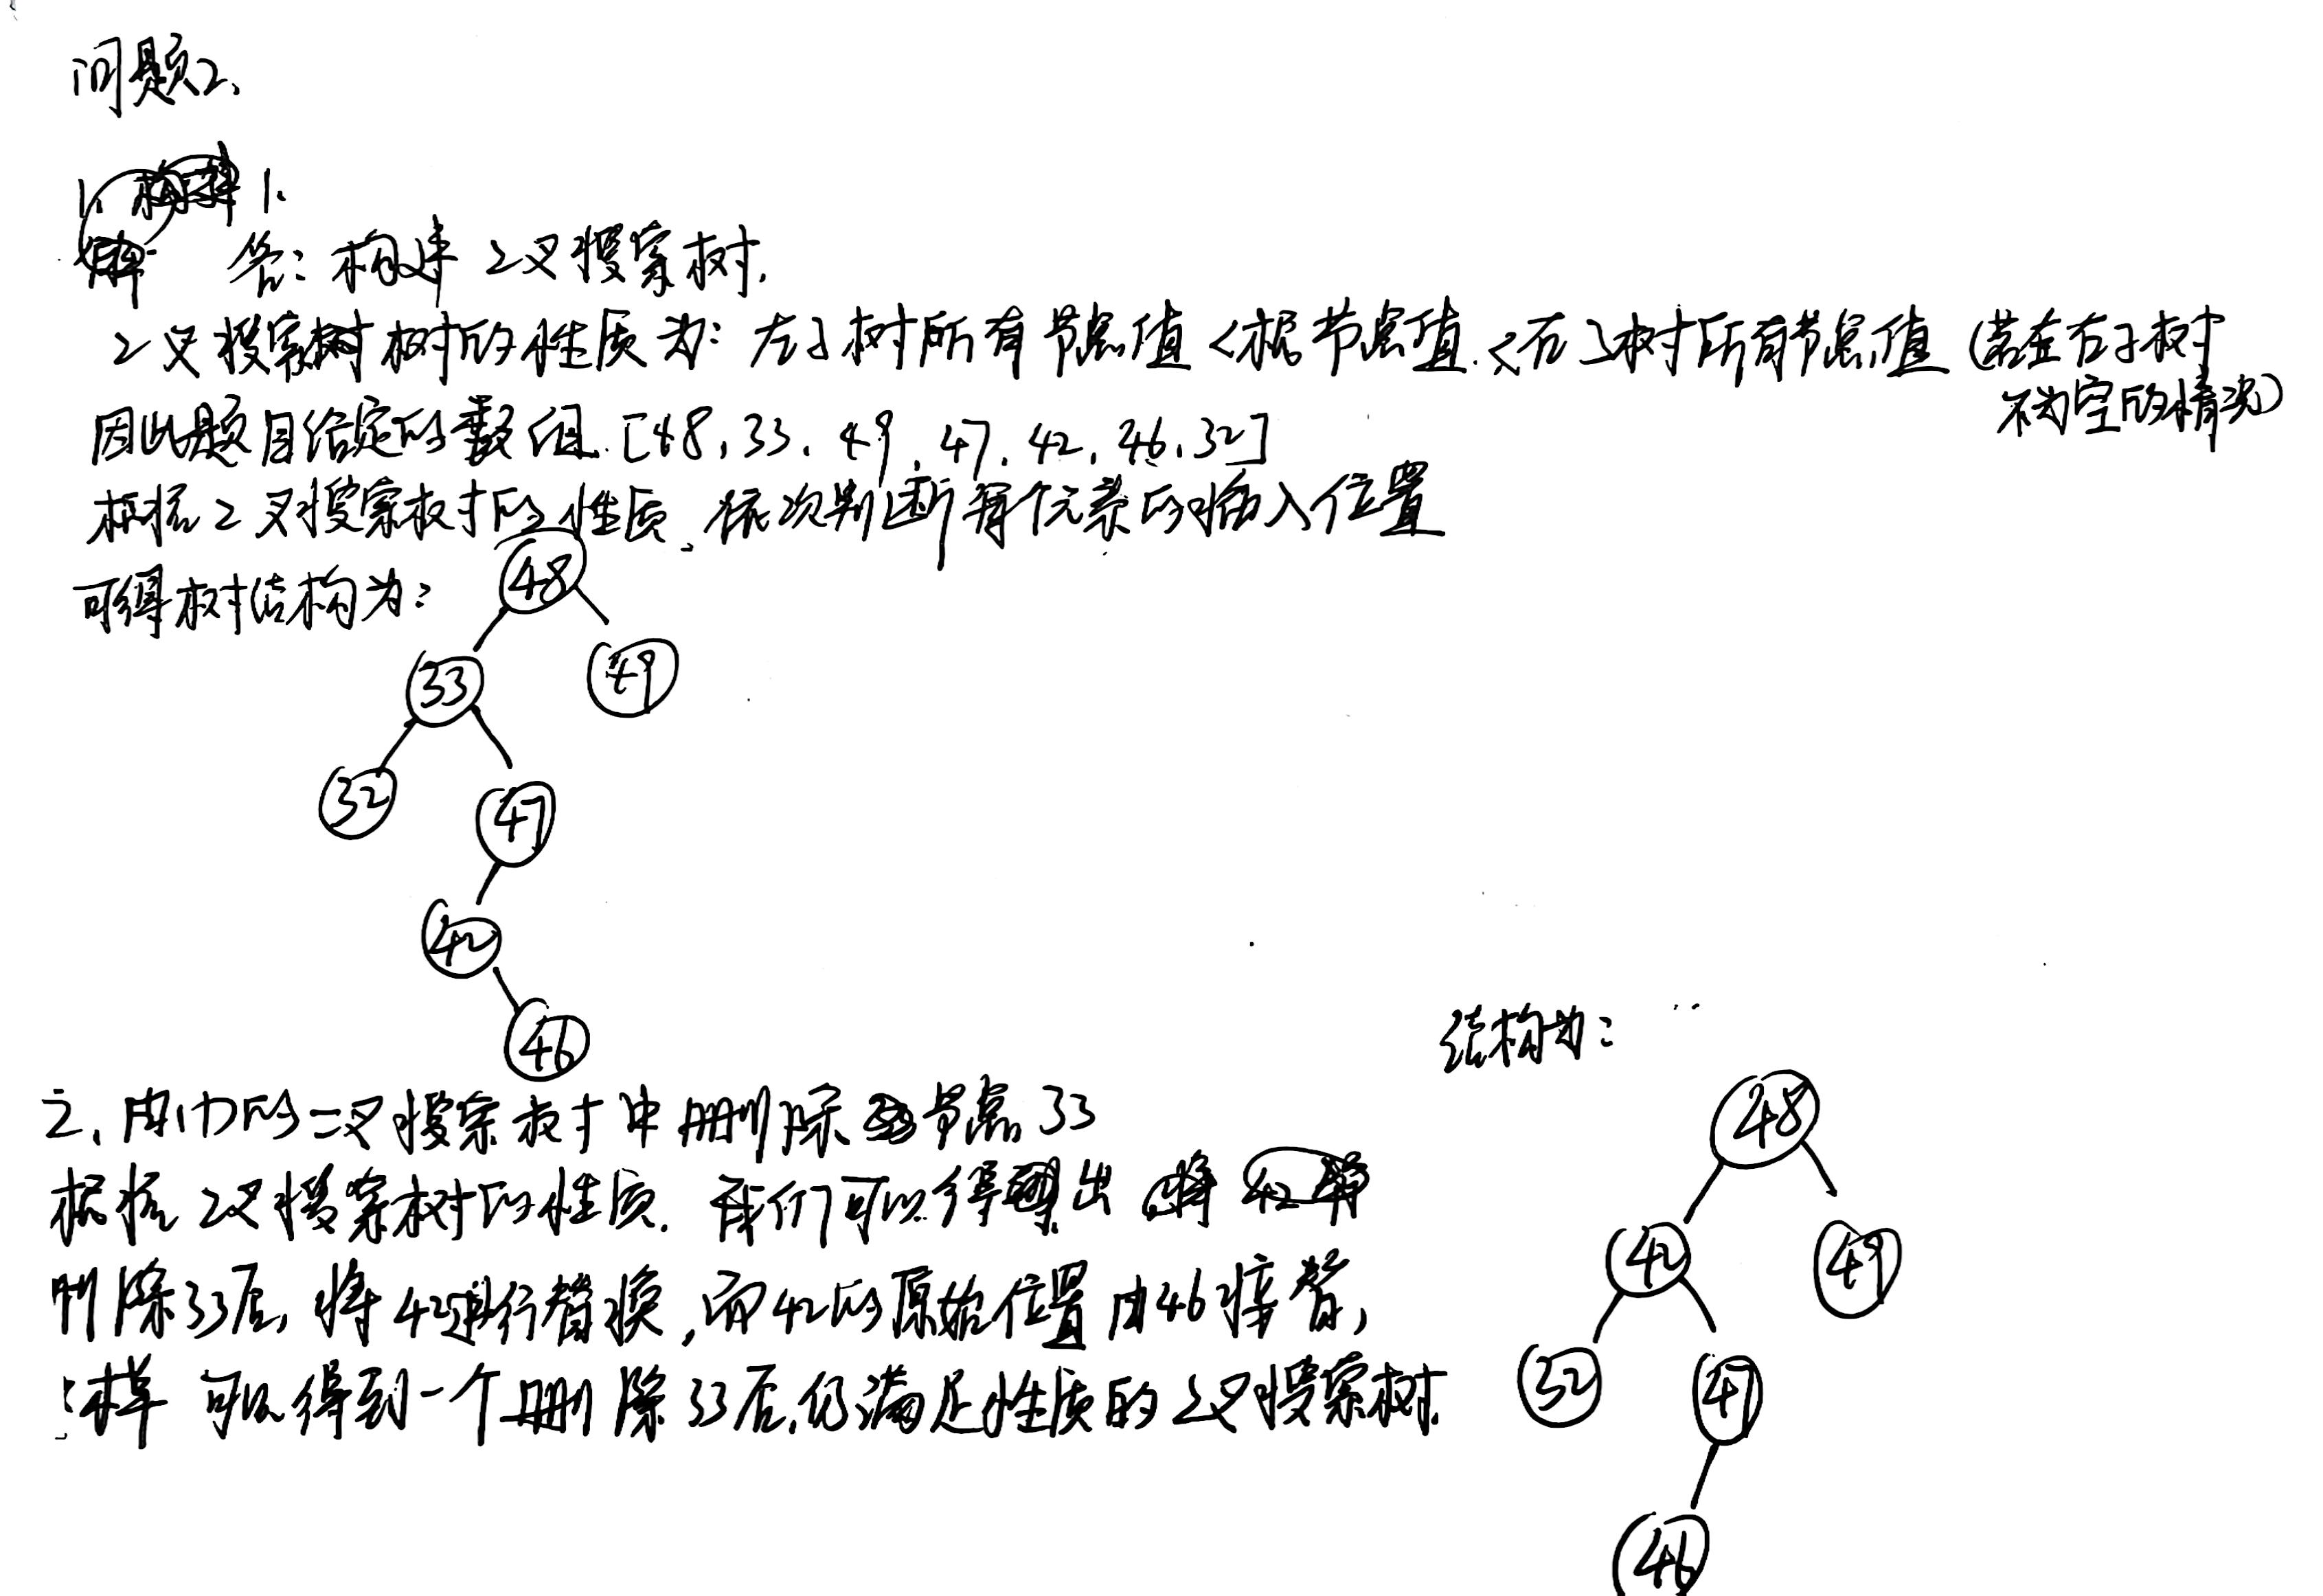 问题2、
1、
答: 构造 2叉搜索树.
2叉搜索树 树的性质为: 左子树所有节点值<根节点值.<右子树所有节点值 (若左右子树
不为空的情况)
因此题目给定的数组. [48, 33, 49, 47, 42, 46, 32]
根据2叉搜索树的性质, 依次判断每个元素的插入位置
可得树结构为:
48
33 49
32 47
42
46
2、由(1)的二叉搜索树中删除 节点 33
根据 2叉搜索树的性质. 我们可以得出
删除33后, 将42进行替换, 而42的原始位置由46接替,
这样 可以得到一个删除33后, 仍满足性质的2叉搜索树.
结构为:
48
42 49
32 47
46